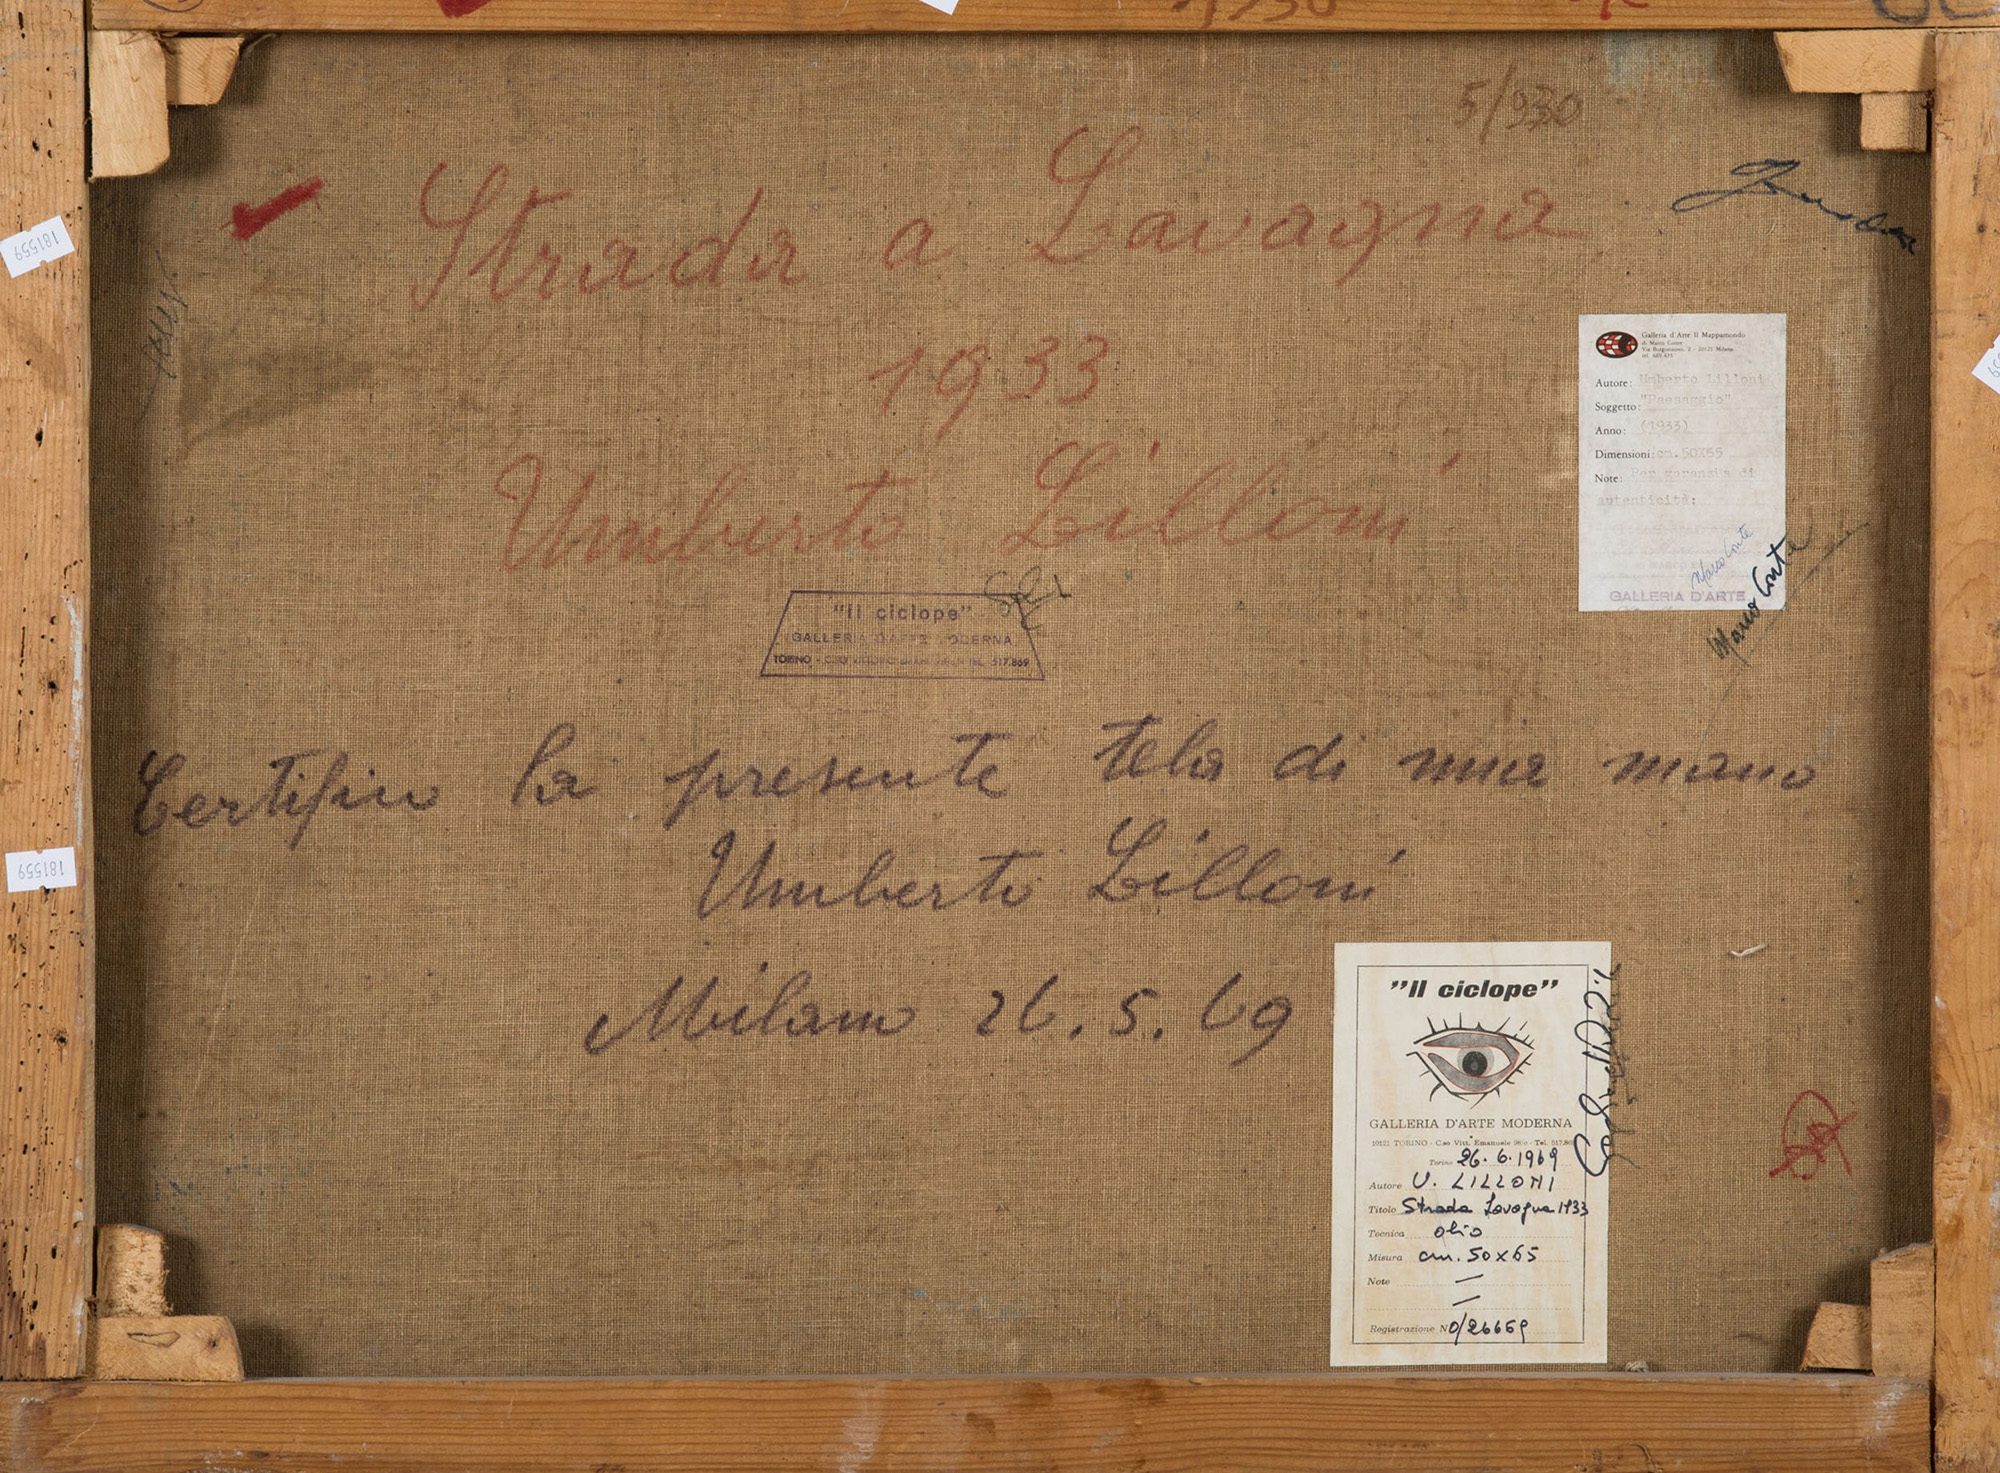 5/930
Strada a Lavagna
1933
Umberto Lilloni
181559
Galleria d'Arte Il Mappamondo
di Marco Conte
20121 Milano
Autore: Umberto Lilloni
Soggetto: "Paesaggio"
Anno: (1933)
Dimensioni: cm. 50X65
Note: Per garanzia di
autenticità:
Marco Conte
GALLERIA D'ARTE
Marco Conte
"il ciclope"
GALLERIA D'ARTE MODERNA
TORINO - TEL. 517.869
Certifico la presente tela di mia mano
Umberto Lilloni
Milano 26.5.69
181559
"Il ciclope"
GALLERIA D'ARTE MODERNA
10121 TORINO - C.so Vitt. Emanuele - Tel.
Torino 26.6.1969
Autore U. LILLONI
Titolo Strada Lavagna 1933
Tecnica olio
Misura cm. 50x65
Note —
—
Registrazione N 0/26669